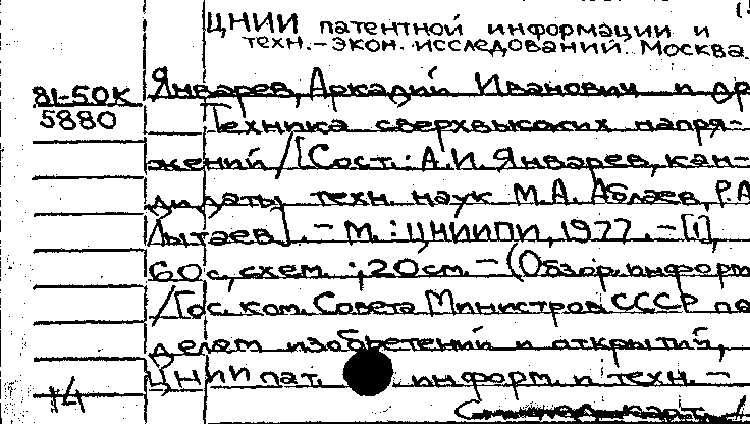 ЦНИИ патентной информации и
техн.-экон. исследований. Москва
81-50К
5880
Январев, Аркадий Иванович и др
Техника сверхвысоких напря-
жений /[Сост.: А.И. Январев, кан-
дидаты техн. наук М.А. Аблаев, Р.А
Лытаев]. - М. : ЦНИИПИ, 1977. - [1],
60 с., схем. ; 20 см. - (Обзор. информ
/Гос. ком. Совета Министров СССР по
делам изобретений и открытий,
ЦНИИ пат. информ. и техн. -
14